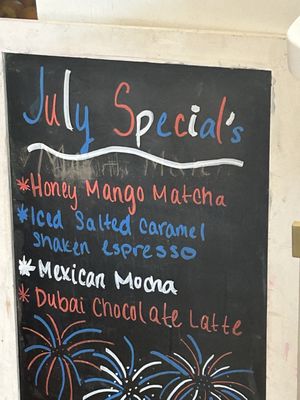 July Special's
Honey Mango Matcha
Iced Salted Caramel
shaken espresso
Mexican Mocha
Dubai Chocolate Latte